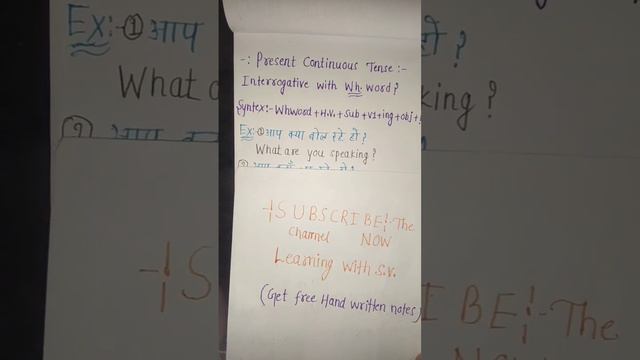 -: Present Continuous Tense :-
Interrogative with Wh. word?
Syntex:- Whword + H.V. + Sub + V1 + ing + obj +
Ex:- ① आप क्या बोल रहे हो ?
What are you speaking ?
-¦SUBSCRIBE¦- The
channel NOW
Learning with S.V.
(Get free Hand written notes)